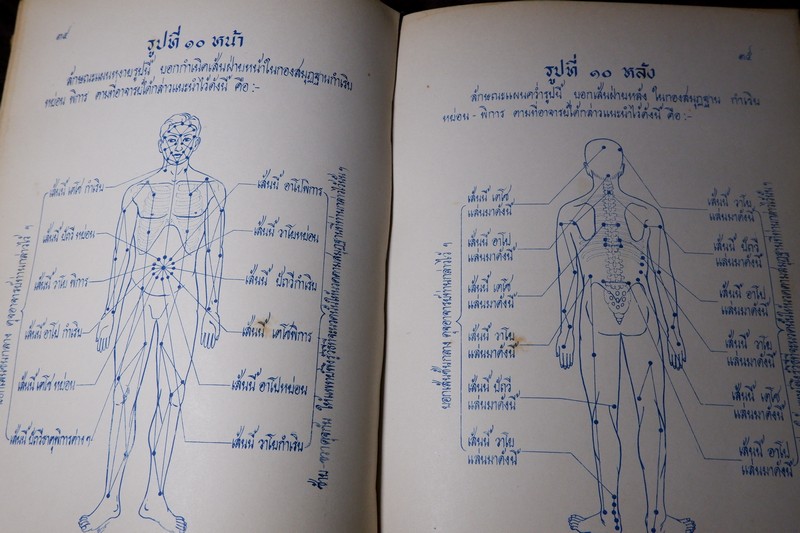 ๓๔
รูปที่ ๑๐ หน้า
ลักษณะแผนหงายรูปนี้ บอกกำเนิดเส้นฝ่ายหน้าในกองสมุฏฐานกำเริบ
หย่อน พิการ ตามที่อาจารย์ได้กล่าวแนะนำไว้ดังนี้ คือ :-
เส้นนี้ เตโช กำเริบ
เส้นนี้ ปัถวี หย่อน
เส้นนี้ วาโย พิการ
เส้นนี้ อาโป กำเริบ
เส้นนี้ เตโช หย่อน
เส้นนี้ ปัถวีธาตุพิการต่างๆ
เส้นนี้ อาโปพิการ
เส้นนี้ วาโยหย่อน
เส้นนี้ ปัถวีกำเริบ
เส้นนี้ เตโชพิการ
เส้นนี้ อาโปหย่อน
เส้นนี้ วาโยกำเริบ
๓๕
รูปที่ ๑๐ หลัง
ลักษณะแผนคว่ำรูปนี้ บอกเส้นฝ่ายหลัง ในกองสมุฏฐาน กำเริบ
หย่อน - พิการ ตามที่อาจารย์ได้กล่าวแนะนำไว้ดังนี้ คือ :-
เส้นนี้ เตโช
แล่นมาดังนี้
เส้นนี้ อาโป
แล่นมาดังนี้
เส้นนี้ เตโช
แล่นมาดังนี้
เส้นนี้ วาโย
แล่นมาดังนี้
เส้นนี้ ปัถวี
แล่นมาดังนี้
เส้นนี้ วาโย
แล่นมาดังนี้
เส้นนี้ วาโย
แล่นมาดังนี้
เส้นนี้ ปัถวี
แล่นมาดังนี้
เส้นนี้ อาโป
แล่นมาดังนี้
เส้นนี้ วาโย
แล่นมาดังนี้
เส้นนี้ เตโช
แล่นมาดังนี้
เส้นนี้ อาโป
แล่นมาดังนี้